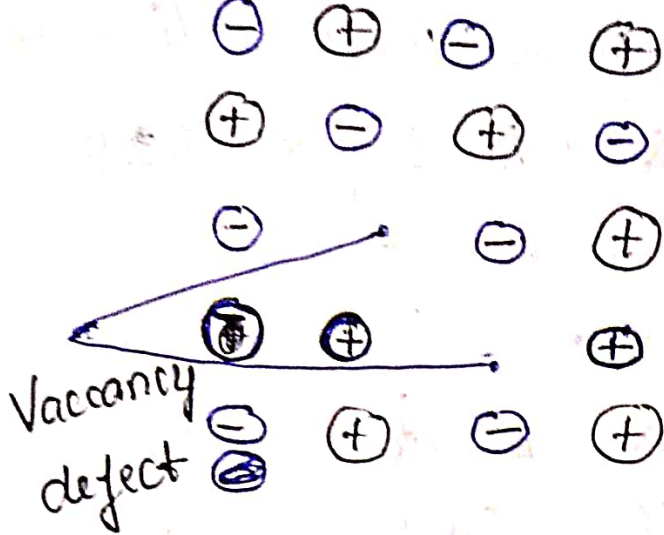 - + - +
+ - + -
- - +
+ +
Vaccancy
- + - +
defect